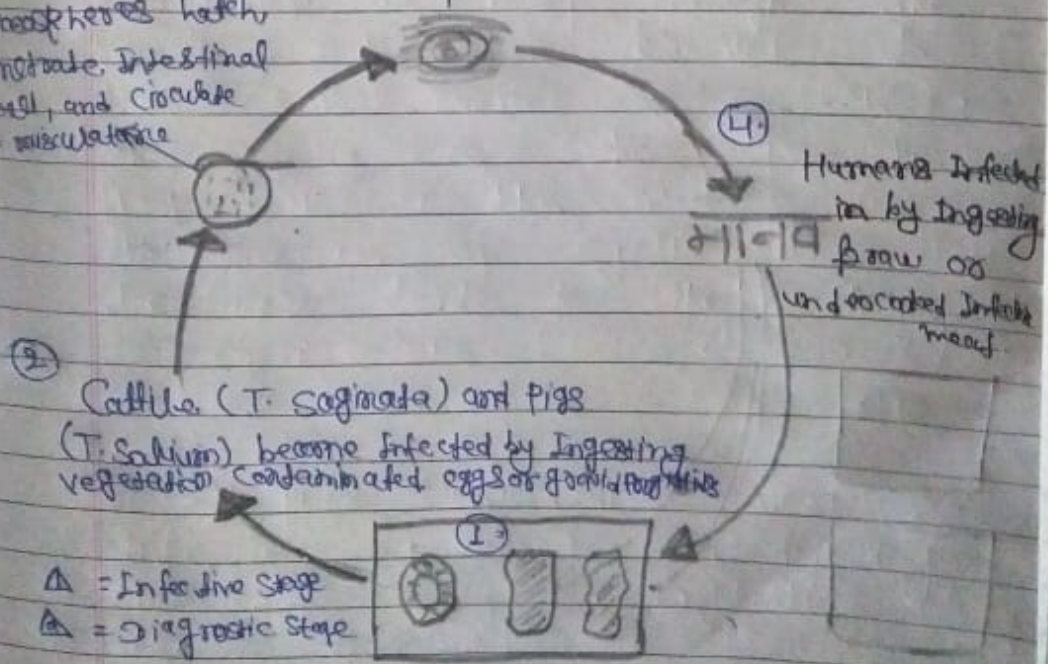 hatch,
Intestinal
and Circulate
musculature
4.
Humans Infect
in by Ingesting
raw or
undercooked Infect
meat.
मानव
2
Cattle (T. Saginata) and Pigs
(T. Solium) become Infected by Ingesting
vegetation Contaminated eggs or
1.
△ = Infective Stage
= Diagnostic Stage